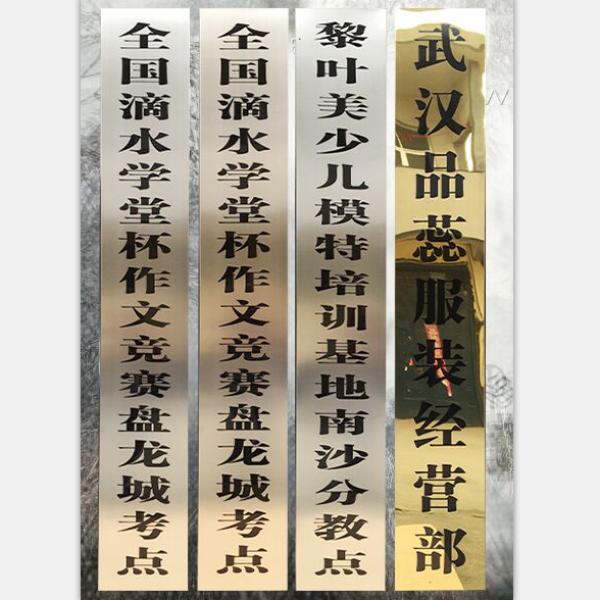 全国滴水学堂杯作文竞赛盘龙城考点
全国滴水学堂杯作文竞赛盘龙城考点
黎叶美少儿模特培训基地南沙分教点
武汉品蕊服装经营部